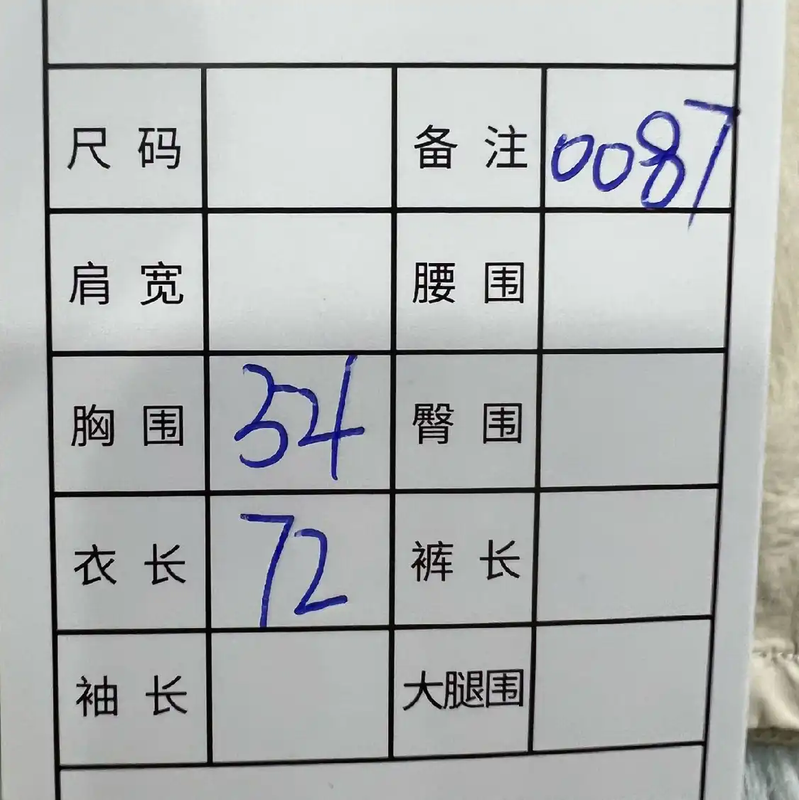 尺码 备注 0087
肩宽 腰围
胸围 54 臀围
衣长 72 裤长
袖长 大腿围